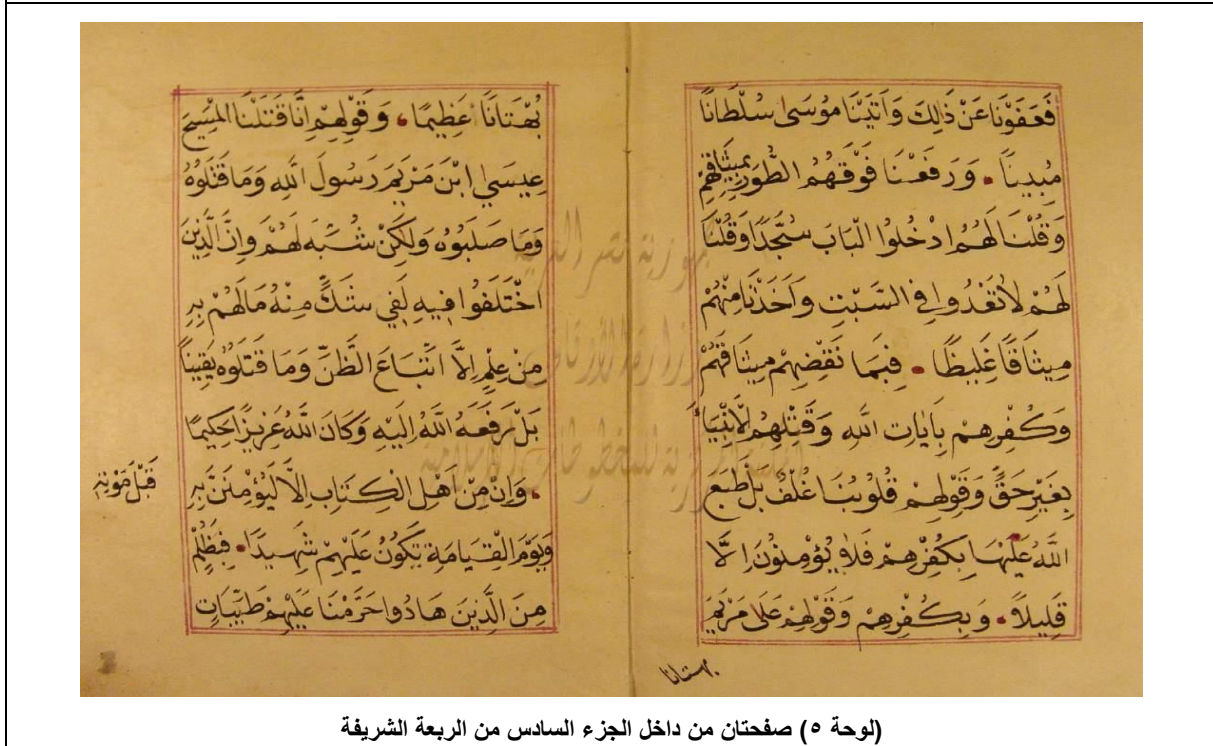 فَعَفَوْنَا عَنْ ذَالِكَ وَاٰتَيْنَا مُوسَى سُلْطَانًا
مُبِينًا وَرَفَعْنَا فَوْقَهُمُ الطُّورَ بِمِيثَاقِهِمْ
وَقُلْنَا لَهُمُ ادْخُلُوا الْبَابَ سُجَّدًا وَقُلْنَا
لَهُمْ لَا تَعْدُوا فِي السَّبْتِ وَاَخَذْنَا مِنْهُمْ
مِيثَاقًا غَلِيظًا فَبِمَا نَقْضِهِمْ مِيثَاقَهُمْ
وَكُفْرِهِمْ بِاٰيَاتِ اللهِ وَقَتْلِهِمُ الْاَنْبِيَاءَ
بِغَيْرِ حَقٍّ وَقَوْلِهِمْ قُلُوبُنَا غُلْفٌ بَلْ طَبَعَ
اللهُ عَلَيْهَا بِكُفْرِهِمْ فَلَا يُؤْمِنُونَ اِلَّا
قَلِيلًا وَبِكُفْرِهِمْ وَقَوْلِهِمْ عَلَى مَرْيَمَ
بهتانا
بُهْتَانًا عَظِيمًا وَقَوْلِهِمْ اِنَّا قَتَلْنَا الْمَسِيحَ
عِيسَى ابْنَ مَرْيَمَ رَسُولَ اللهِ وَمَا قَتَلُوهُ
وَمَا صَلَبُوهُ وَلَكِنْ شُبِّهَ لَهُمْ وَاِنَّ الَّذِينَ
اخْتَلَفُوا فِيهِ لَفِي شَكٍّ مِنْهُ مَا لَهُمْ بِهِ
مِنْ عِلْمٍ اِلَّا اتِّبَاعَ الظَّنِّ وَمَا قَتَلُوهُ يَقِينًا
بَلْ رَفَعَهُ اللهُ اِلَيْهِ وَكَانَ اللهُ عَزِيزًا حَكِيمًا
وَاِنْ مِنْ اَهْلِ الْكِتَابِ اِلَّا لَيُؤْمِنَنَّ بِهِ
قَبْلَ مَوْتِهِ
وَيَوْمَ الْقِيَامَةِ يَكُونُ عَلَيْهِمْ شَهِيدًا فَبِظُلْمٍ
مِنَ الَّذِينَ هَادُوا حَرَّمْنَا عَلَيْهِمْ طَيِّبَاتٍ
(لوحة ٥) صفحتان من داخل الجزء السادس من الربعة الشريفة